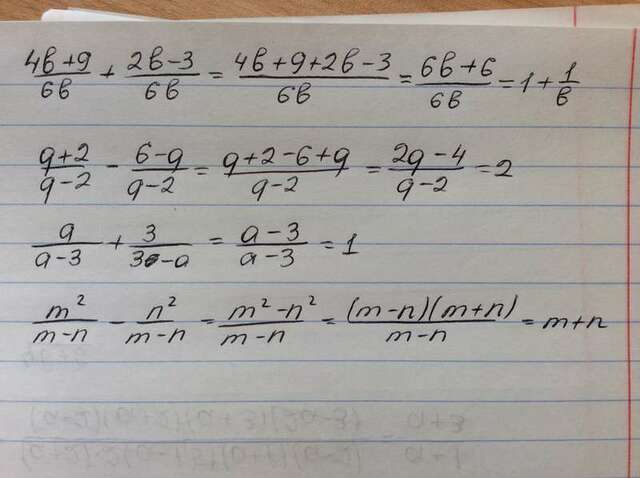 (4b+9)/(6b) + (2b-3)/(6b) = (4b+9+2b-3)/(6b) = (6b+6)/(6b) = 1 + 1/b
(a+2)/(a-2) - (6-a)/(a-2) = (a+2-6+a)/(a-2) = (2a-4)/(a-2) = 2
a/(a-3) + 3/(3-a) = (a-3)/(a-3) = 1
m²/(m-n) - n²/(m-n) = (m²-n²)/(m-n) = (m-n)(m+n)/(m-n) = m+n